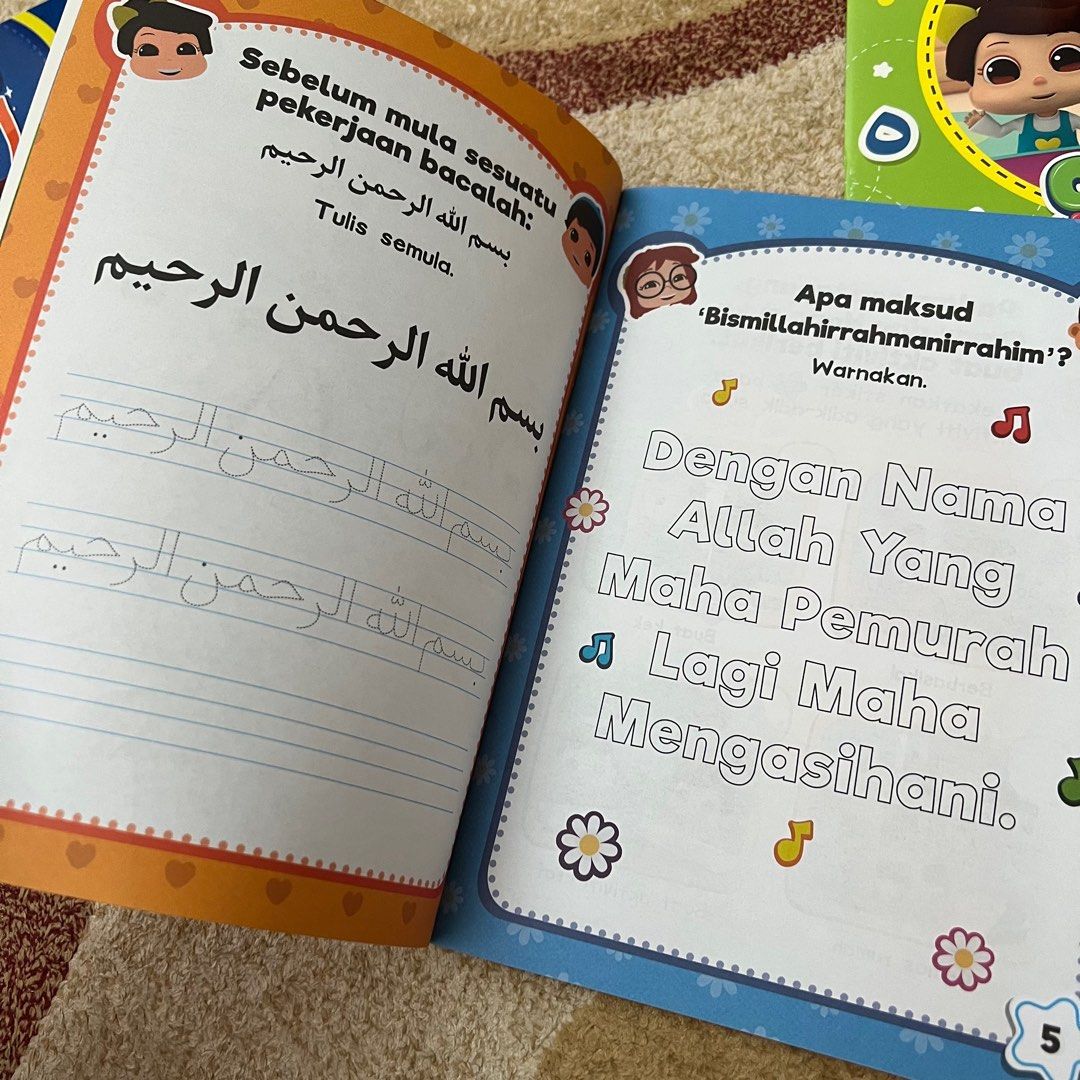 Sebelum mula sesuatu
pekerjaan bacalah:
بسم الله الرحمن الرحيم
Tulis semula.
بسم الله الرحمن الرحيم
بسم الله الرحمن الرحيم
بسم الله الرحمن الرحيم
Apa maksud
‘Bismillahirrahmanirrahim’?
Warnakan.
Dengan Nama
Allah Yang
Maha Pemurah
Lagi Maha
Mengasihani.
5